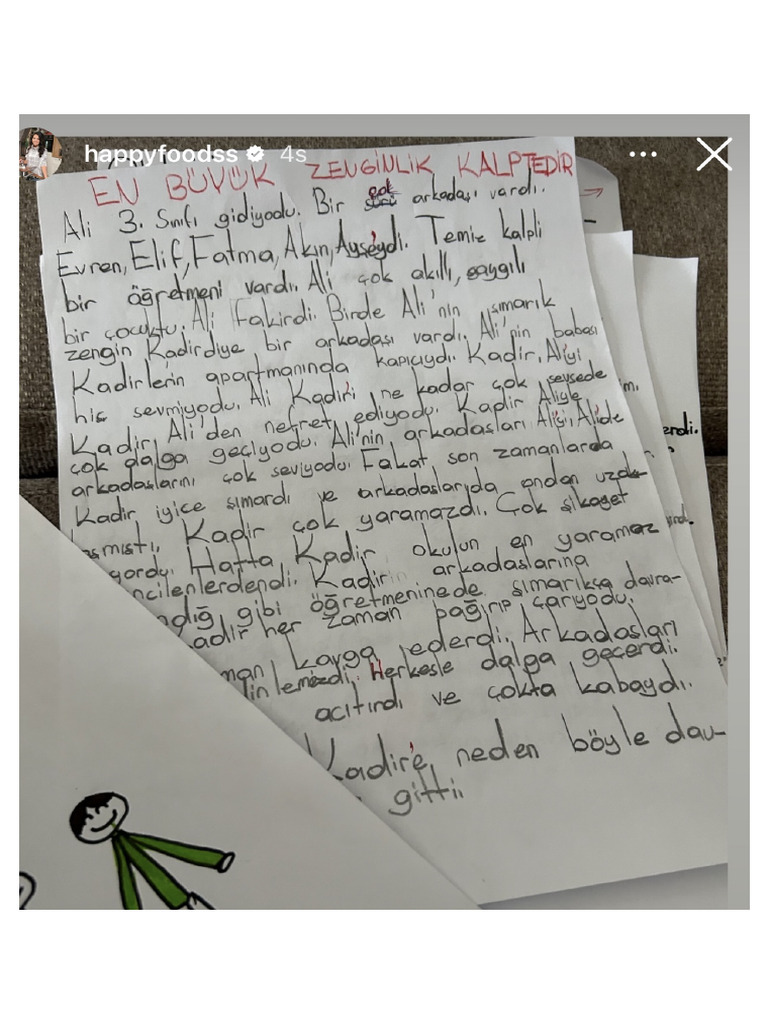 happyfoodss 4s
EN BÜYÜK ZENGİNLİK KALPTEDİR
Ali 3. Sınıfı gidiyodu. Bir çok arkadaşı vardı.
Evren, Elif, Fatma, Akın, Ayşe'ydi. Temiz kalpli
bir öğretmeni vardı. Ali çok akıllı, saygılı
bir çocuktu. Ali Fakirdi. Birde Ali'nin şımarık
zengin Kadir diye bir arkadaşı vardı. Ali'nin babası
Kadirlerin apartmanında kapıcıydı. Kadir, Ali'yi
hiç sevmiyodu. Ali Kadir'i ne kadar çok sevsede
Kadir Ali'den nefret ediyodu. Kadir Aliyle
çok dalga geçiyodu. Ali'nin arkadaşları Aliyi, Alide
arkadaşlarını çok seviyodu. Fakat son zamanlarda
Kadir iyice şımardı ve arkadaşlarıda ondan uzak-
aşmıştı. Kadir çok yaramazdı. Çok şikayet
yordu. Hatta Kadir okulun en yaramaz
ncilenlerdendi. Kadirin arkadaşlarına
ndığ gibi öğretmeninede şımarıkça davra-
adir her zaman bağırıp çarıyodu.
man kavga ederdi. Arkadaşları
inlemezdi. Herkesle dalga geçerdi.
acıtırdı ve çokta kabaydı.
Kadir'e, neden böyle dav-
gitti.
im.
erdi.